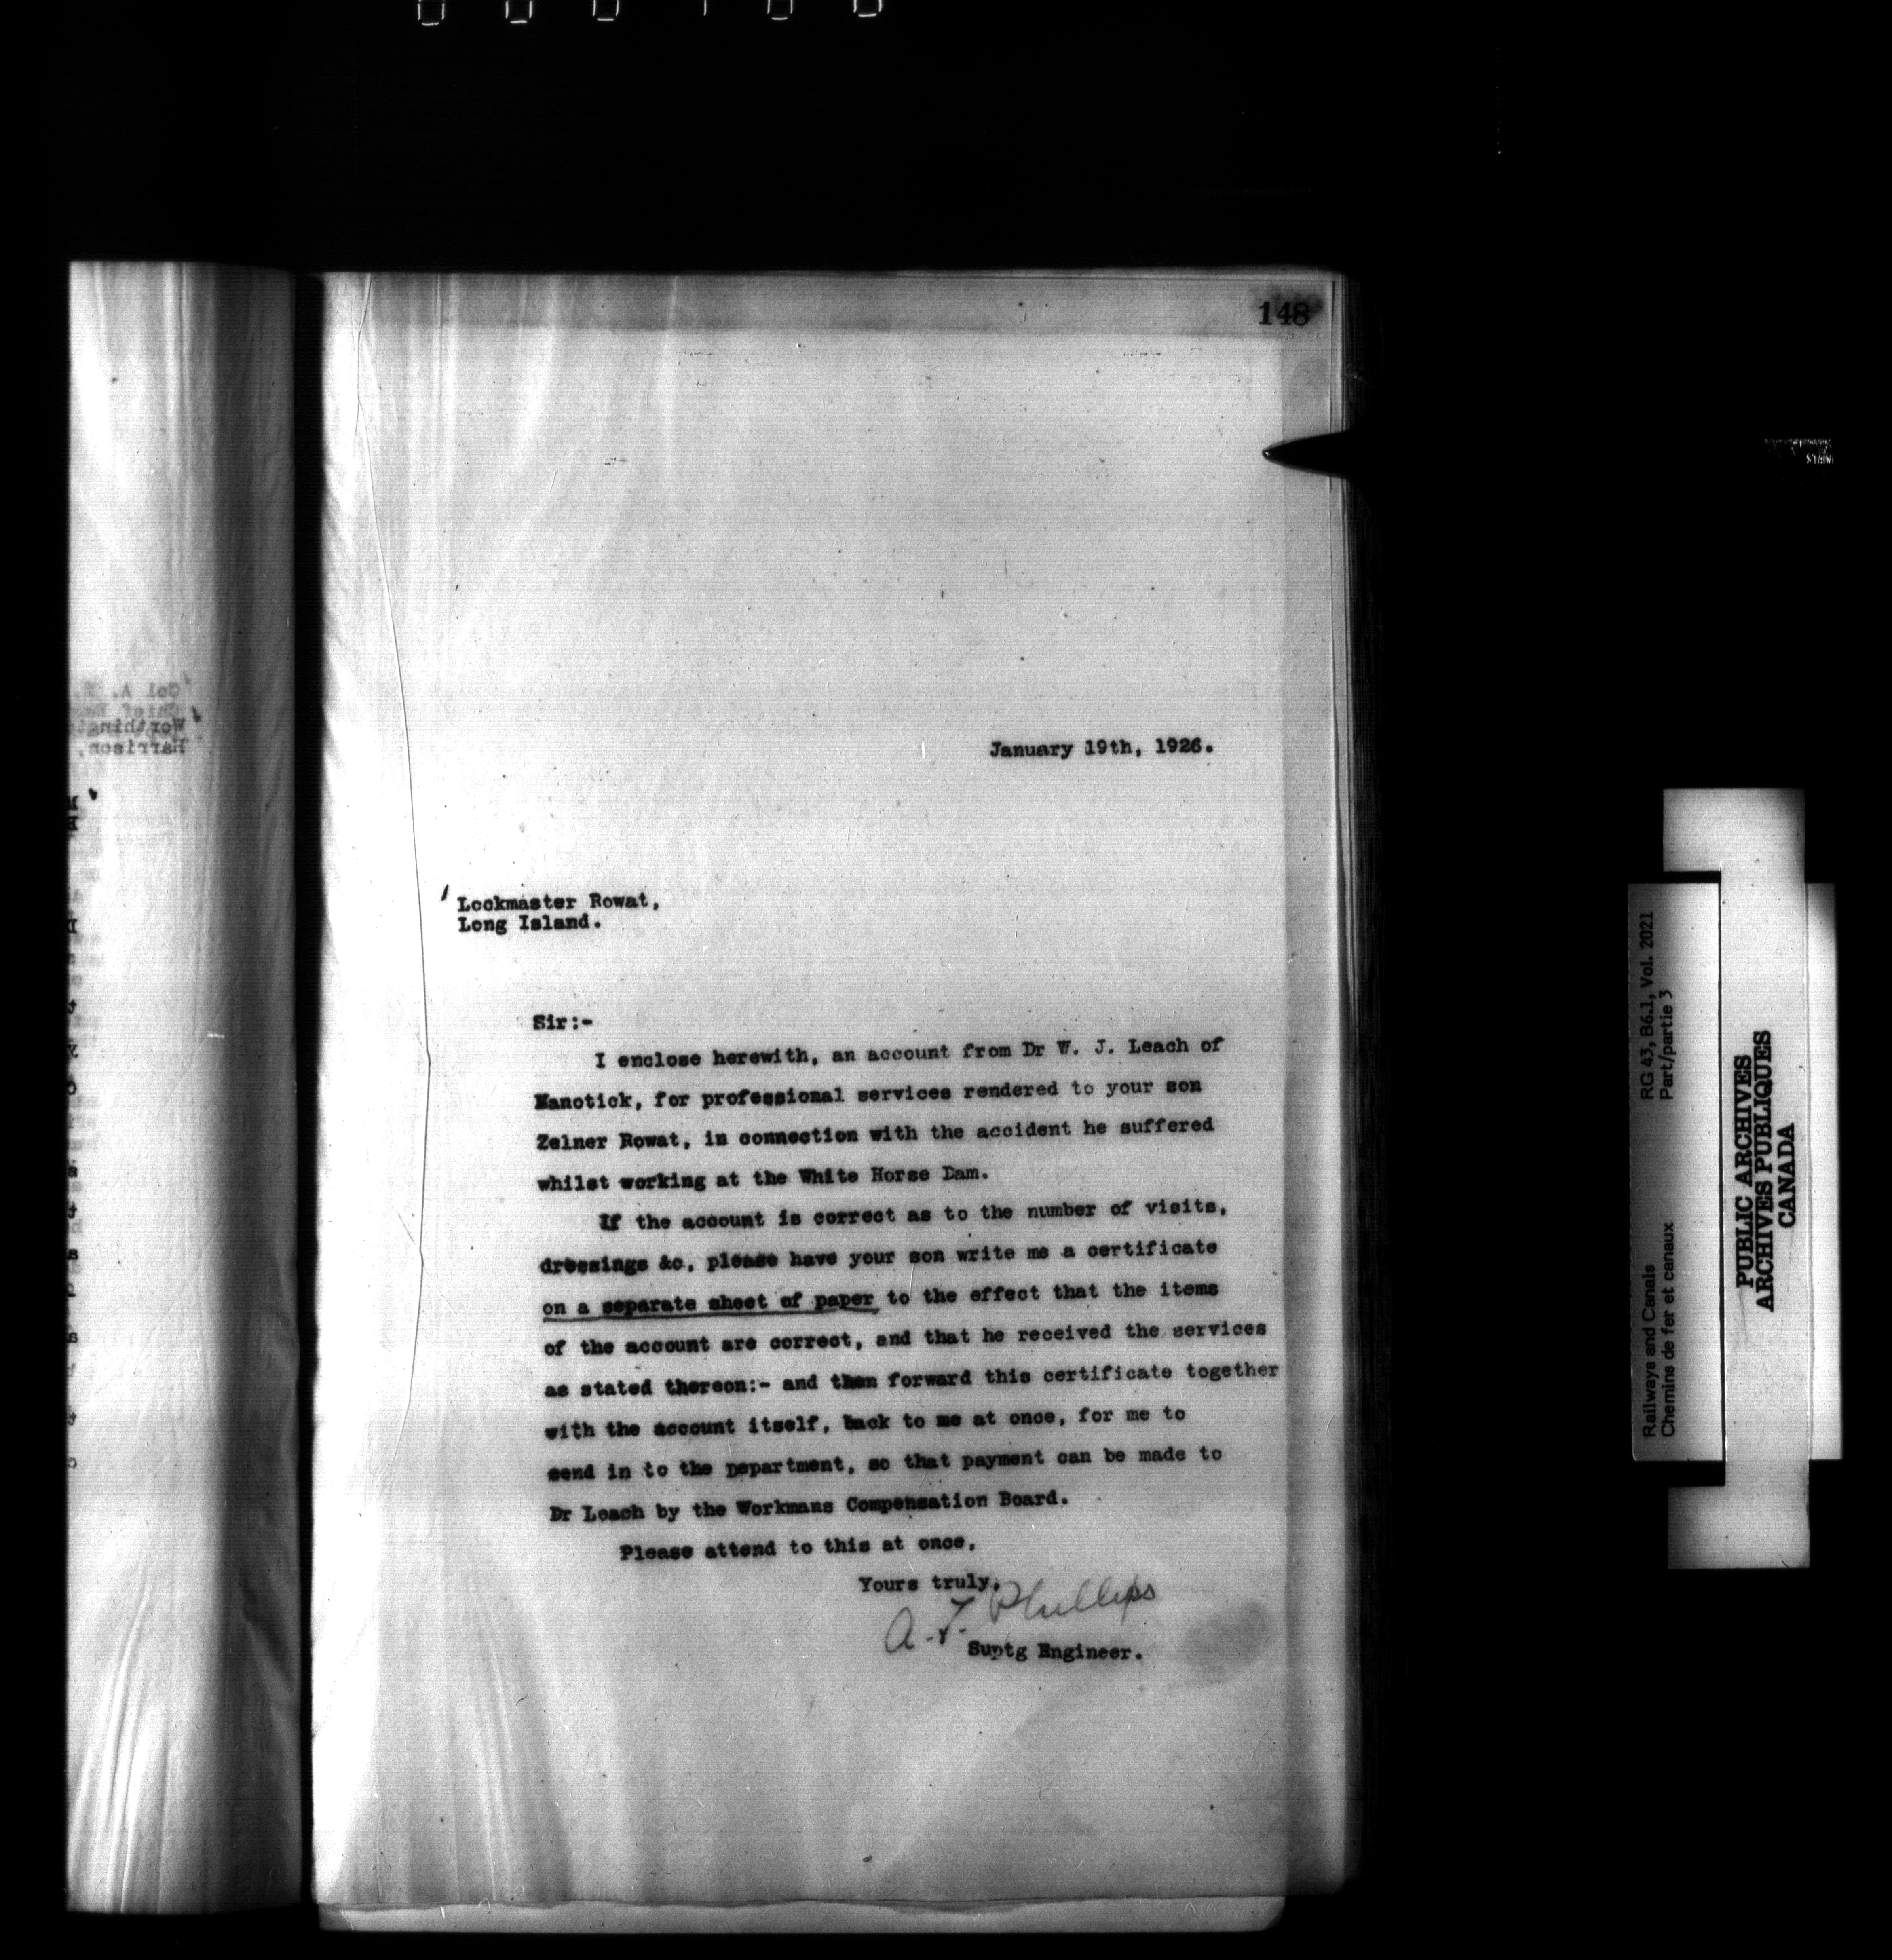 148
January 19th, 1926.
Lockmaster Rowat,
Long Island.
Sir:-
I enclose herewith, an account from Dr W. J. Leach of
Manotick, for professional services rendered to your son
Zelner Rowat, in connection with the accident he suffered
whilst working at the White Horse Dam.
If the account is correct as to the number of visits,
dressings &c, please have your son write me a certificate
on a separate sheet of paper to the effect that the items
of the account are correct, and that he received the services
as stated thereon:- and then forward this certificate together
with the account itself, back to me at once, for me to
send in to the Department, so that payment can be made to
Dr Leach by the Workmans Compensation Board.
Please attend to this at once,
Yours truly,
A. T. Phillips
Suptg Engineer.
Col A.
Chief
Worthingt
Harrison,
Railways and Canals RG 43, B6.1, Vol. 2021
Chemins de fer et canaux Part/partie 3
PUBLIC ARCHIVES
ARCHIVES PUBLIQUES
CANADA